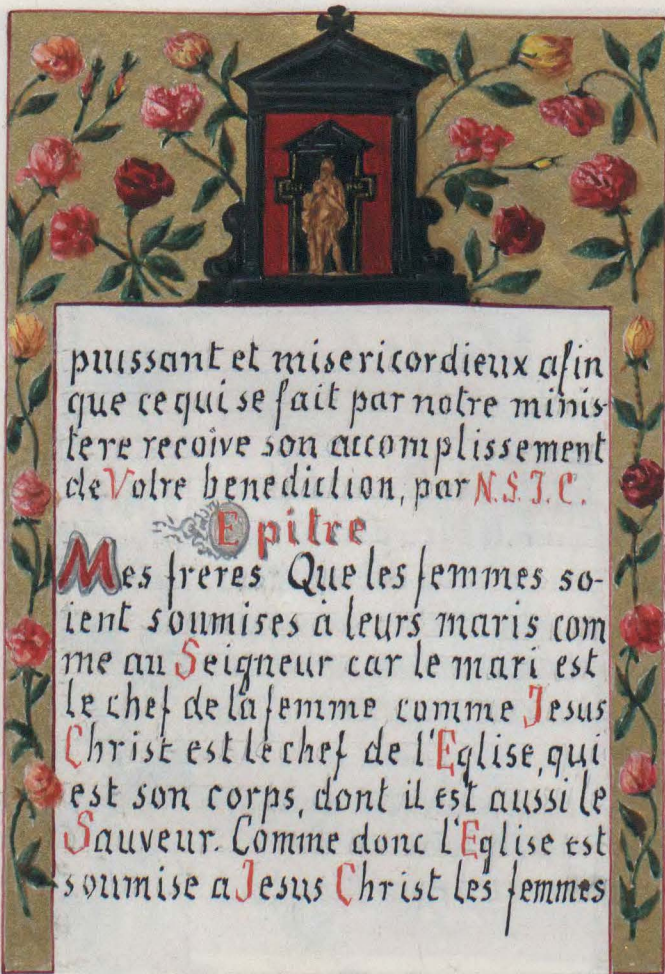 puissant et misericordieux afin
que ce qui se fait par notre minis-
tere recoive son accomplissement
de Votre benediction, par N.S.J.C.
Epitre
Mes freres Que les femmes so-
ient soumises à leurs maris com
me au Seigneur car le mari est
le chef de la femme comme Jesus
Christ est le chef de l'Eglise, qui
est son corps, dont il est aussi le
Sauveur. Comme donc l'Eglise est
soumise a Jesus Christ les femmes